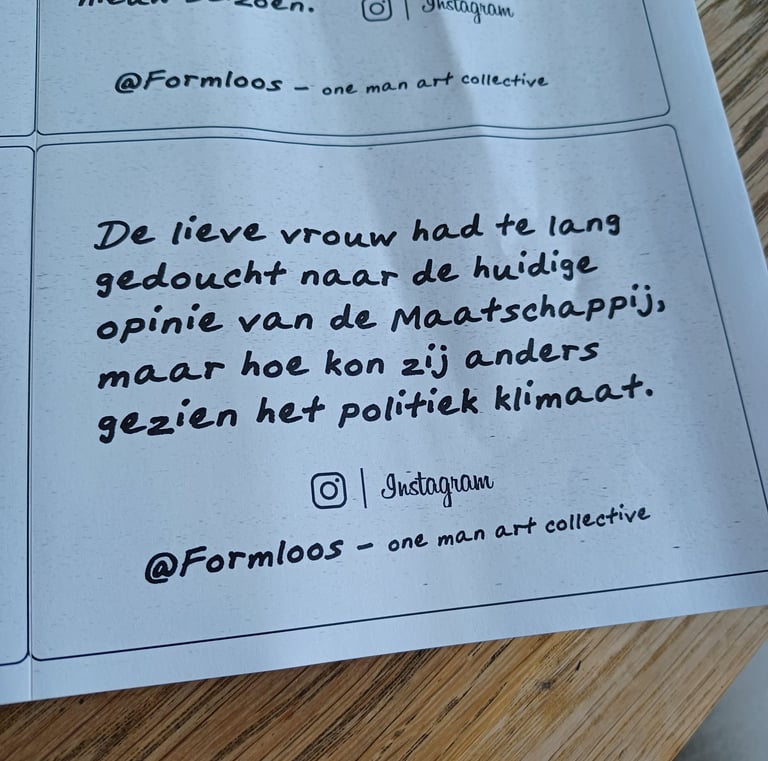 zoen.
Instagram
@Formloos - one man art collective
De lieve vrouw had te lang
gedoucht naar de huidige
opinie van de Maatschappij,
maar hoe kon zij anders
gezien het politiek klimaat.
Instagram
@Formloos - one man art collective